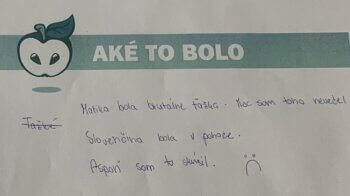 AKÉ TO BOLO
Matika bola brutálne ťažká. Moc som toho nevedel
Ťažké
Slovenčina bola v pohode.
Aspoň som to skúsil.